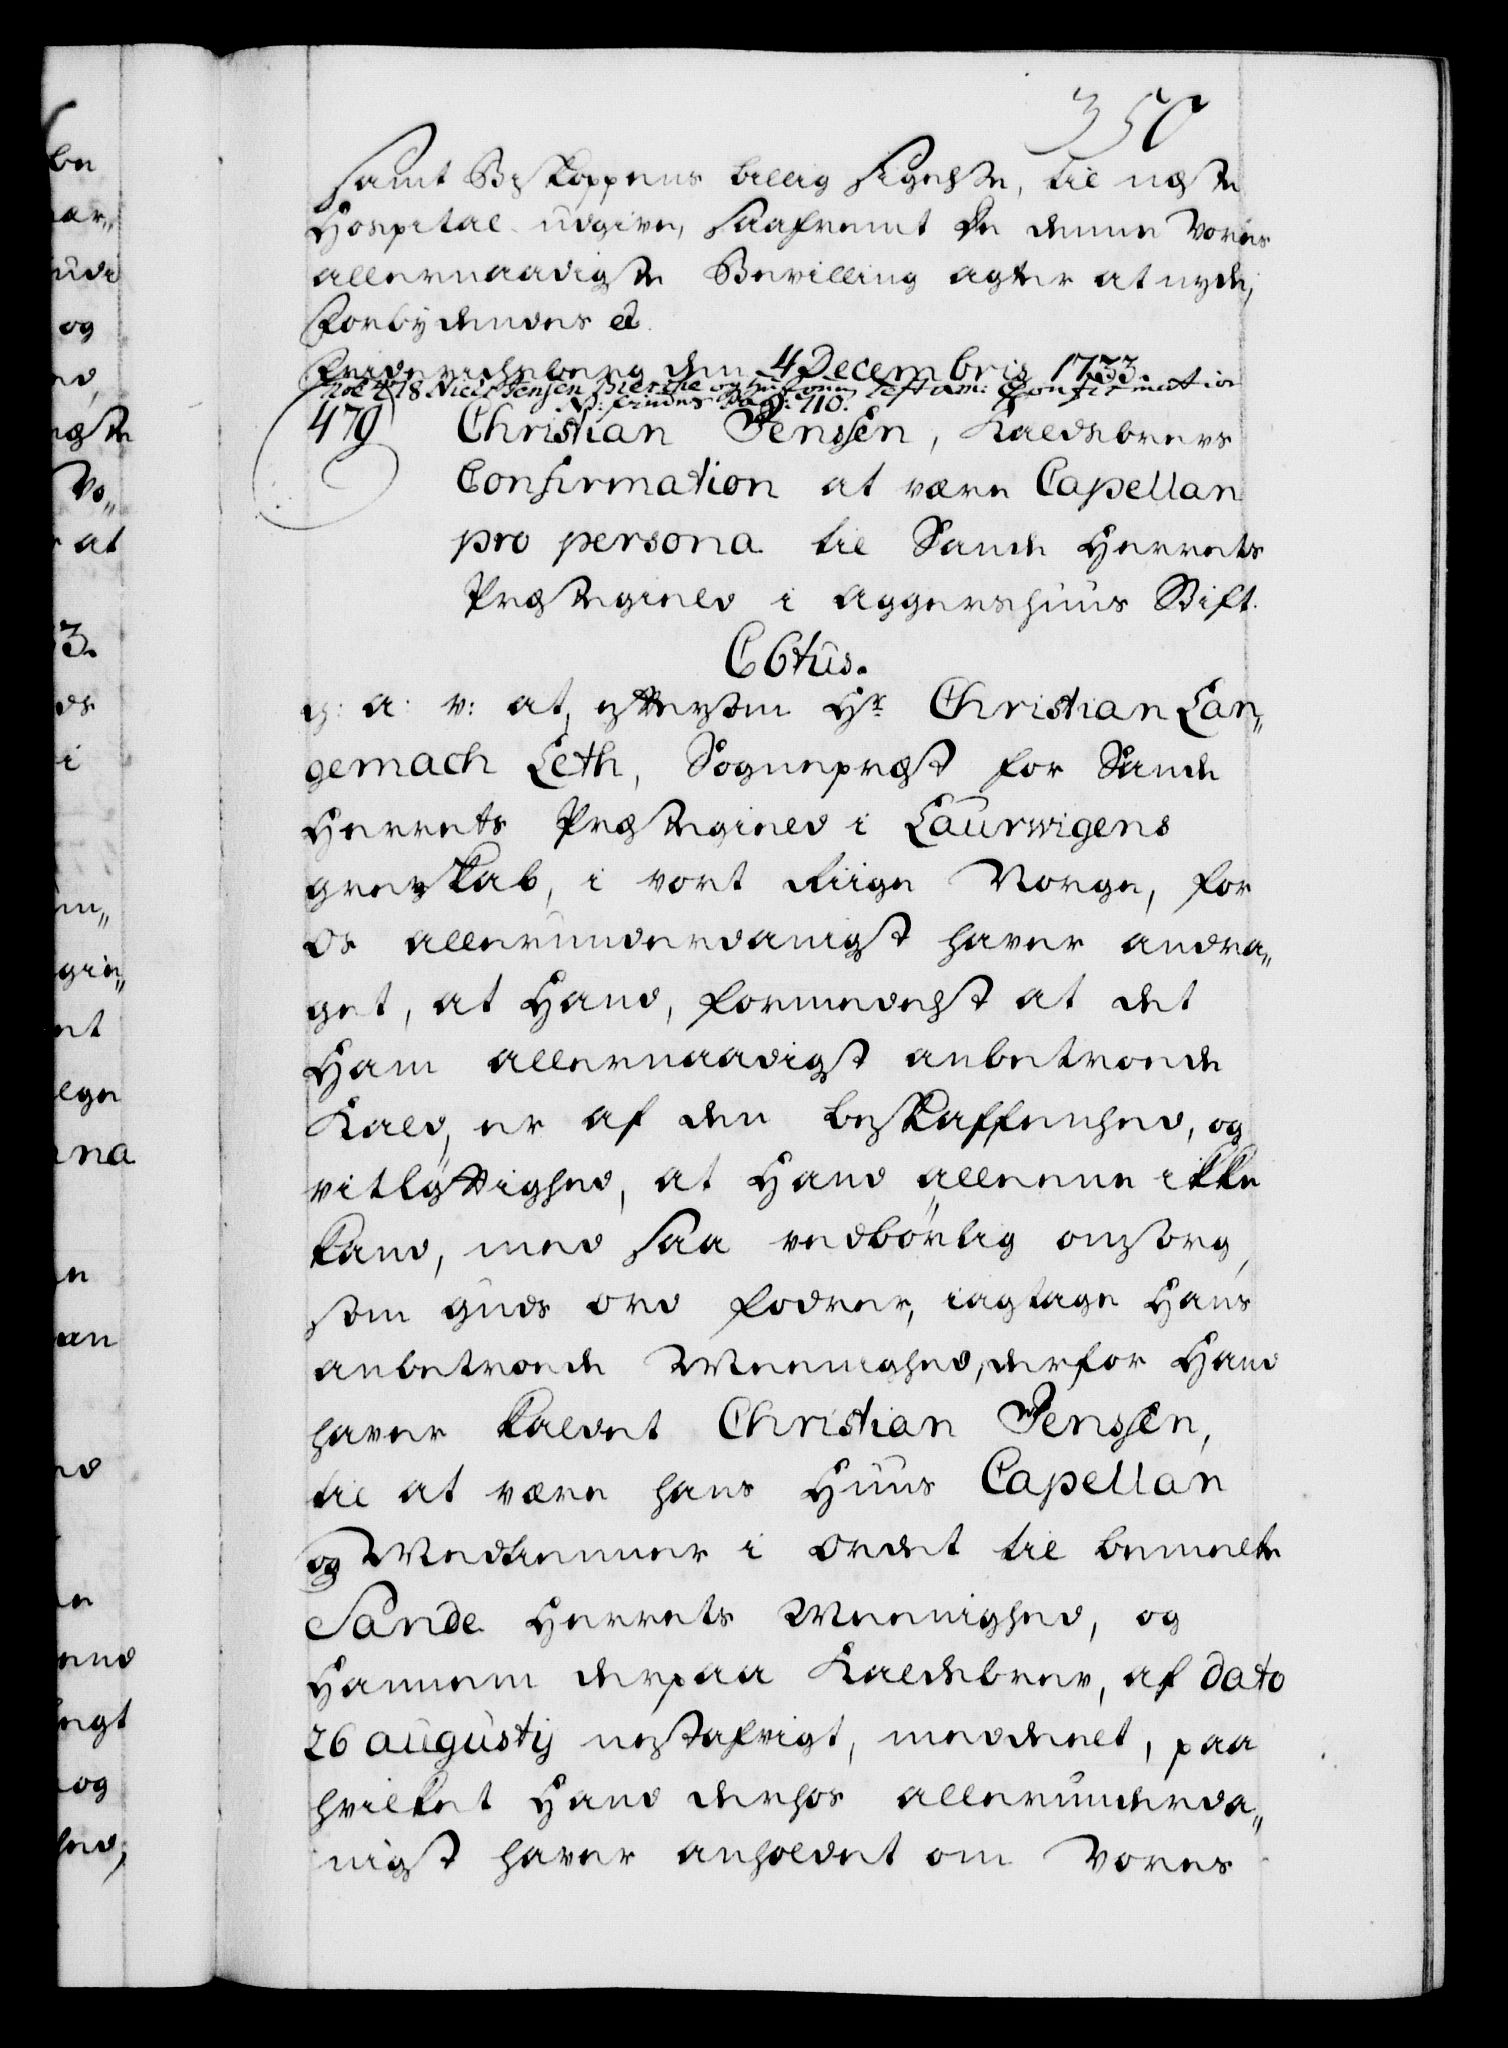 350
samt Biskoppens billig sigelse, til næste
Hospital udgive, saafremt De denne Vores
allernaadigste Bevilling agter at nyde,
Forbydendes &
Friderichsberg den 4 Decembris 1733
No 478 Niels Jensen Bierche og hustrues Testam: Confirmation
NB: findes Pag: 710.
479 Christian Jenssen, Kaldsbrevs
Confirmation at være Capellan
pro persona til Sande Herrets
Præstegield i Aggershuus Stift.
C6tus.
g: a: v: at, eftersom Hr Christian Lan„
gemach Leth, Sognepræst for Sande
Herrets Præstegield i Laurwigens
grevskab, i vort Riige Norge, for
Os allerunderdanigst haver andra„
get, at Hand, formedelst at det
Ham allernaadigst anbetroede
Kald, er af den beskaffenhed, og
vitløftighed, at Hand alleene ikke
kand, med saa vedbørlig omsorg,
som guds ord fodrer, iagtage Hans
anbetroede Meenighed, derfor Hand
haver kaldet Christian Jenssen,
til at være hans Huus Capellan
og Medtienner i Ordet til bemelte
Sande Herrets Meenighed, og
Hannem derpaa Kaldsbrev, af dato
26 augustij nestafvigt, meddeelt, paa
hvilket Hand derhos allerunderda„
nigst haver anholdet om Vores